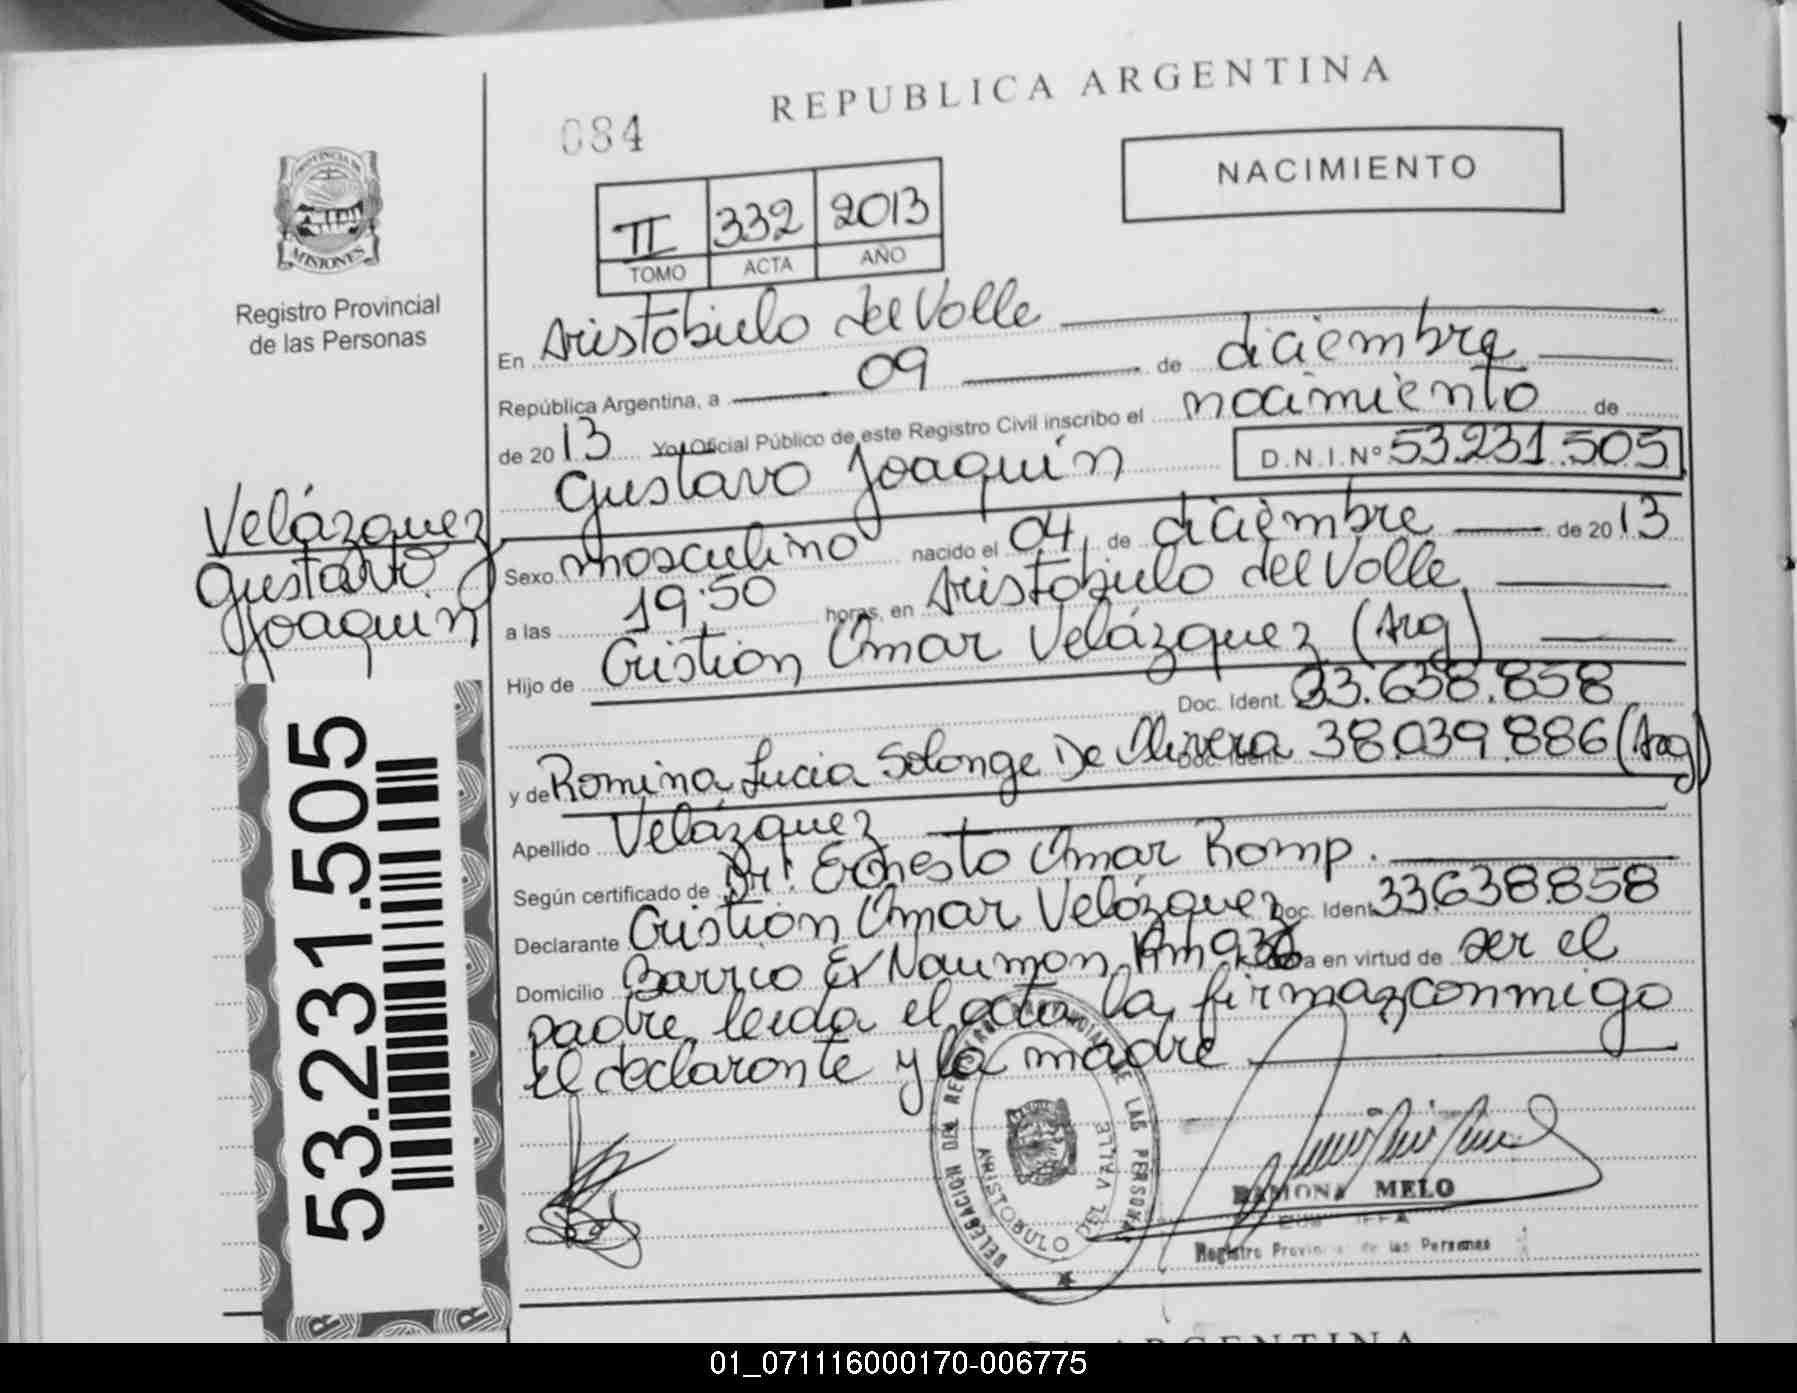 REPUBLICA ARGENTINA
084
NACIMIENTO
II 332 2013
TOMO ACTA AÑO
PROVINCIA DE
MISIONES
Registro Provincial
de las Personas
En Aristobulo del Valle
República Argentina, a 09 de diciembre
de 2013 Yo, Oficial Público de este Registro Civil inscribo el nacimiento de
Gustavo Joaquín D.N.I.Nº 53.231.505
Velázquez
Gustavo
Joaquin
Sexo masculino nacido el 04 de diciembre de 2013
a las 19:50 horas, en Aristobulo del Valle
Hijo de Cristian Omar Velázquez (Arg)
Doc. Ident. 33.638.858
y de Romina Lucia Solange De Olivera Doc. Ident. 38.039.886 (Arg)
Apellido Velázquez
Según certificado de Dr. Ernesto Omar Romp.
Declarante Cristian Omar Velázquez Doc. Ident. 33.638.858
Domicilio Barrio Ex Nauman Km 936 en virtud de ser el
padre, leida el acta, la firman conmigo
el declarante y la madre
53.231.505
DELEGACION DEL REGISTRO PROVINCIAL DE LAS PERSONAS
ARISTOBULO DEL VALLE
RAMONA MELO
Registro Provincial de las Personas
ARGENTINA
01_071116000170-006775